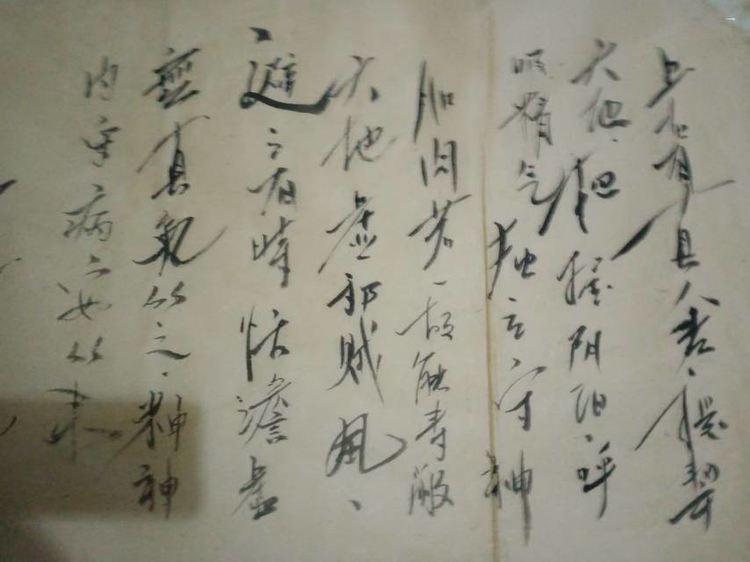 上古有真人者、提挈
天地、把握阴阳、呼
吸精气独立守神
肌肉若一故能寿敝
天地虚邪贼风、
避之有時恬澹虚
無真氣从之、精神
内守病安从来